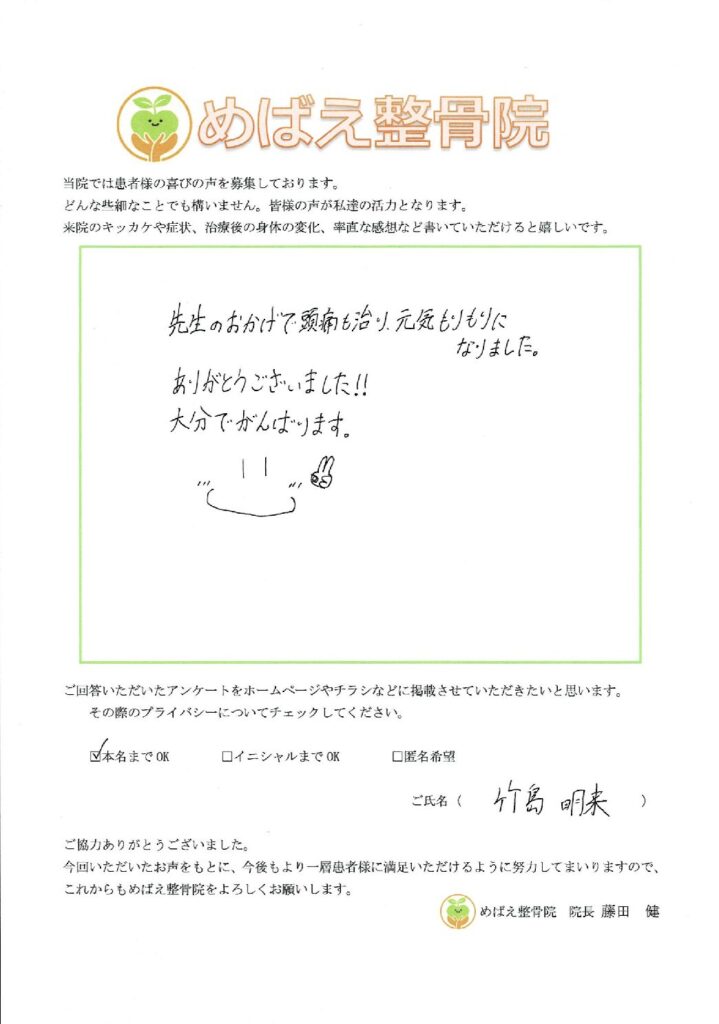 めばえ整骨院
当院では患者様の喜びの声を募集しております。
どんな些細なことでも構いません。皆様の声が私達の活力となります。
来院のキッカケや症状、治療後の身体の変化、率直な感想など書いていただけると嬉しいです。
先生のおかげで頭痛も治り、元気もりもりに
なりました。
ありがとうございました!!
大分でがんばります。
ご回答いただいたアンケートをホームページやチラシなどに掲載させていただきたいと思います。
その際のプライバシーについてチェックしてください。
☑本名までOK □イニシャルまでOK □匿名希望
ご氏名（ 竹島 明来 ）
ご協力ありがとうございました。
今回いただいたお声をもとに、今後もより一層患者様に満足いただけるように努力してまいりますので、
これからもめばえ整骨院をよろしくお願いします。
めばえ整骨院 院長 藤田 健